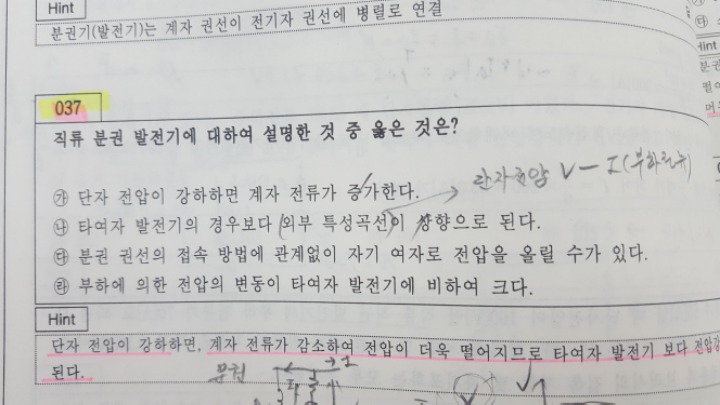 Hint
분권기(발전기)는 계자 권선이 전기자 권선에 병렬로 연결
037
직류 분권 발전기에 대하여 설명한 것 중 옳은 것은?
단자전압 V - I (부하전류)
㉮ 단자 전압이 강하하면 계자 전류가 증가한다.
㉯ 타여자 발전기의 경우보다 외부 특성곡선이 상향으로 된다.
㉰ 분권 권선의 접속 방법에 관계없이 자기 여자로 전압을 올릴 수가 있다.
㉱ 부하에 의한 전압의 변동이 타여자 발전기에 비하여 크다.
Hint
단자 전압이 강하하면, 계자 전류가 감소하여 전압이 더욱 떨어지므로 타여자 발전기 보다 전압강
된다.
분권